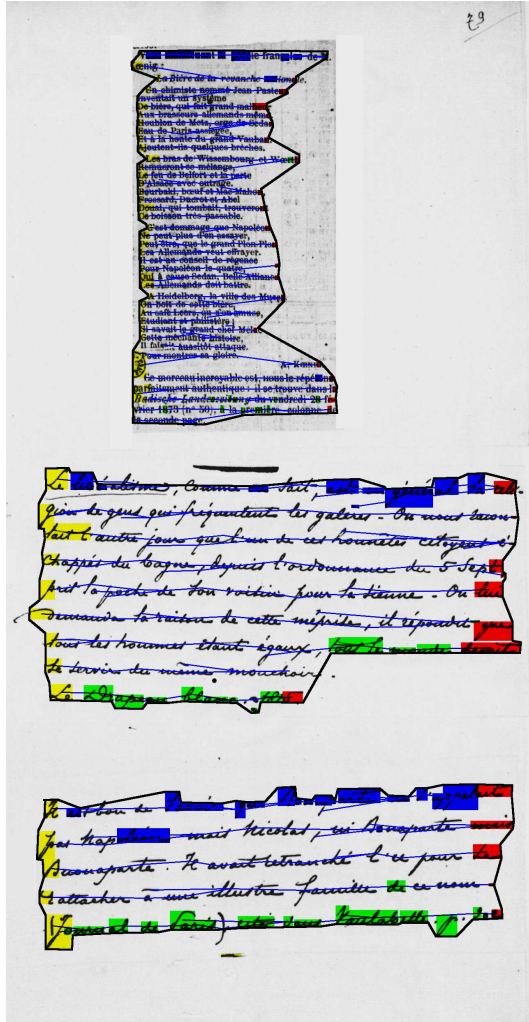 79
française de
La Bière de la revanche
Un chimiste nommé Jean Pasteur
Inventait un système
De bière, qui fait grand
Aux brasseurs allemands même
Houblon de Metz, orge de Sedan
Eau de Paris assiégée,
Et à la honte du grand Vauban
Ajoutent-ils quelques brèches.
Les bras de Wissembourg et Wœrth
Remueront ce mélange,
Le feu de Belfort et la perte
D'Alsace avec outrage.
Bourbaki, bœuf et Mac-Mahon
Frossard, Ducrot et Abel
Douai, qui tombait, trouveront
Ce boisson très-passable.
C'est dommage que Napoléon
Ne peut plus d'en essayer,
Peut être, que le grand Plon-Plon
Les Allemands veut effrayer.
Il est au conseil de régence
Pour Napoléon le quatre,
Qui à cause Sedan, Belle-Alliance
Les Allemands doit battre.
A Heidelberg, la ville des Muses
On boit de cette bière,
Au café Lebre, ou s'en amuse,
Etudiant et philistère ;
Si savait le grand chef Mélac
Cette méchante histoire,
Il aussitôt attaque.
Pour montrer sa gloire.
Ce morceau incroyable est, nous le
parfaitement authentique : il se trouve dans la
Badische Landeszeitung du vendredi 28 fé
vrier 1873 (n° 50), à la première colonne de
la seconde page.
Le libéralisme, comme on sait, est en général la reli-
gion de gens qui fréquentent les galères - On nous racon-
tait l'autre jour que l'un de ces honnêtes citoyens é-
chappés du bagne, depuis l'ordonnance du 5 Sept
prit la poche de son voisin pour la sienne. On lui
demanda la raison de cette méprise, il répondit que
tous les hommes étant égaux, tout le monde devait
se servir du même mouchoir.
Le Drapeau blanc.
Il est bon de
pas Napoléon mais Nicolas, ni Bonaparte mais
Buonaparte. Il avait retranché l'u pour se
rattacher à une illustre famille de ce nom
(Journal de Paris), cité dans Vaulabelle. p.